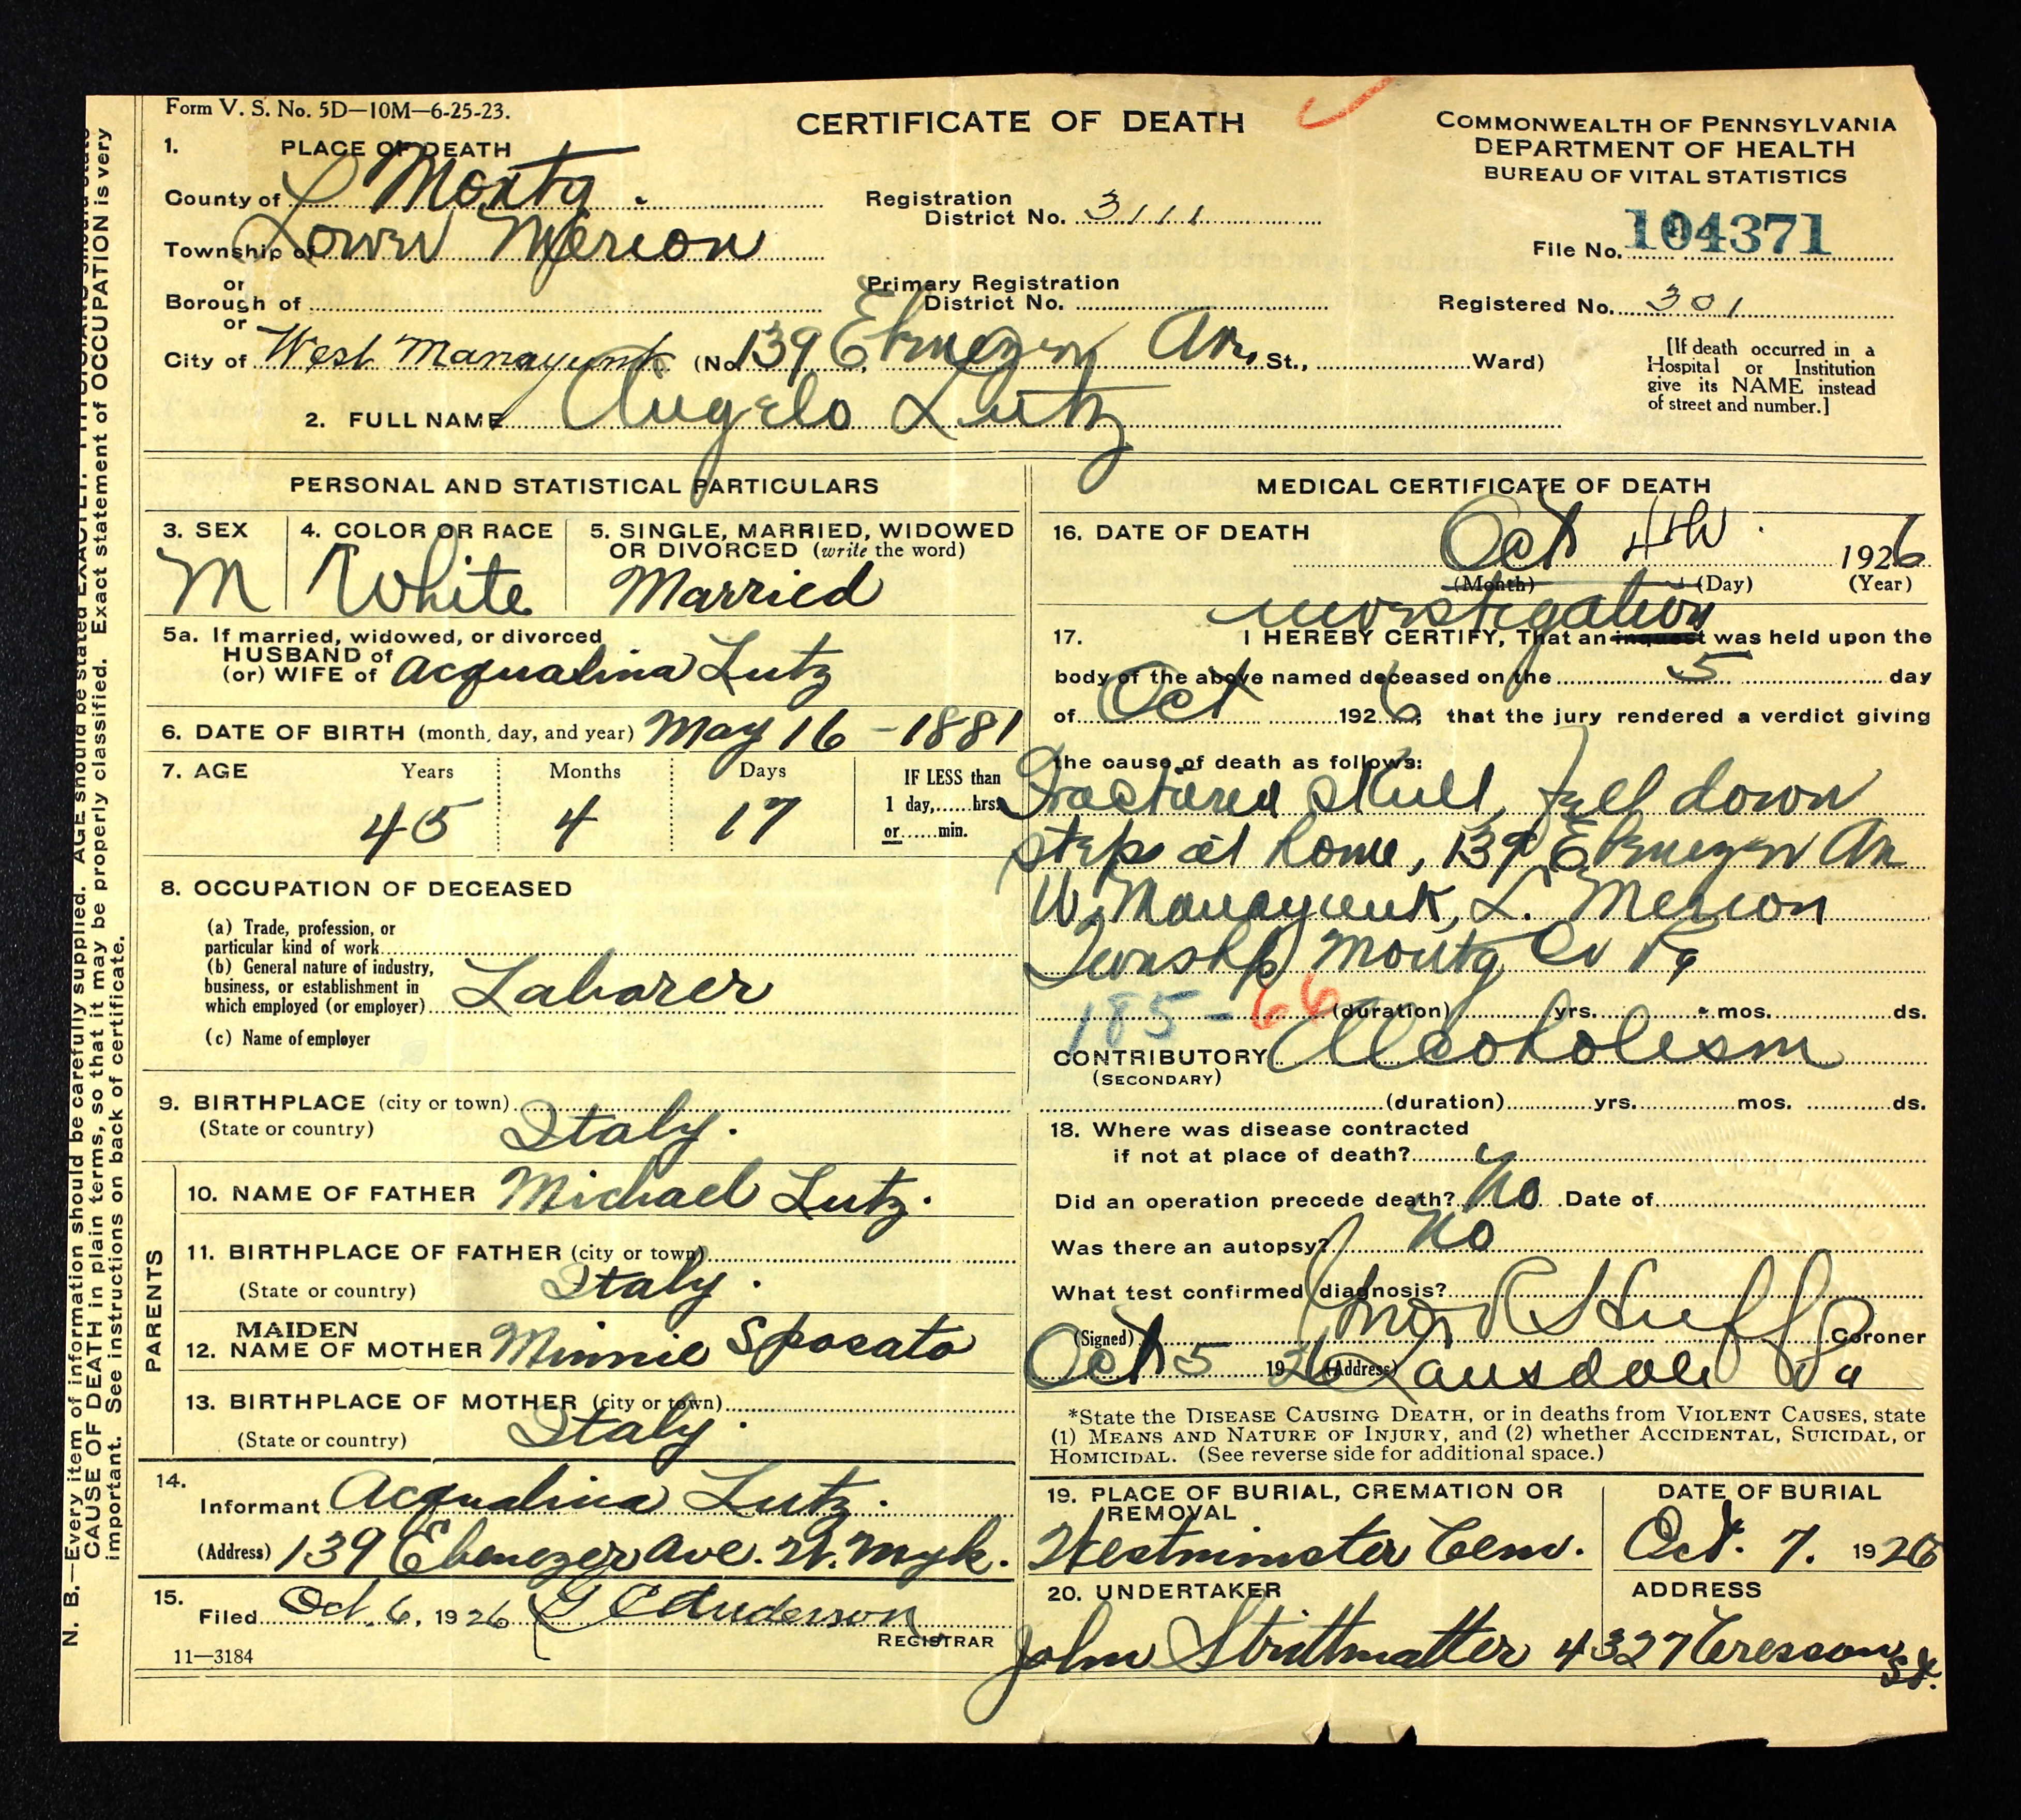 Form V. S. No. 5D—10M—6-25-23.
CERTIFICATE OF DEATH
COMMONWEALTH OF PENNSYLVANIA
DEPARTMENT OF HEALTH
BUREAU OF VITAL STATISTICS
1. PLACE OF DEATH
County of Montg.
Registration District No. 3111
File No. 104371
Township of Lower Merion
or
Borough of
Primary Registration District No.
Registered No. 301
or
City of West Manayunk (No. 139 Ebenezer Av. St., Ward)
[If death occurred in a
Hospital or Institution
give its NAME instead
of street and number.]
2. FULL NAME Angelo Lutz
PERSONAL AND STATISTICAL PARTICULARS
3. SEX
M
4. COLOR OR RACE
White
5. SINGLE, MARRIED, WIDOWED
OR DIVORCED (write the word)
Married
5a. If married, widowed, or divorced
HUSBAND of
(or) WIFE of Acqualina Lutz
6. DATE OF BIRTH (month, day, and year) May 16 - 1881
7. AGE Years Months Days
45 4 17
IF LESS than
1 day,......hrs.
or......min.
8. OCCUPATION OF DECEASED
(a) Trade, profession, or
particular kind of work
(b) General nature of industry,
business, or establishment in
which employed (or employer) Laborer
(c) Name of employer
9. BIRTHPLACE (city or town)
(State or country) Italy.
PARENTS
10. NAME OF FATHER Michael Lutz.
11. BIRTHPLACE OF FATHER (city or town)
(State or country) Italy.
12. MAIDEN NAME OF MOTHER Minnie Sposato
13. BIRTHPLACE OF MOTHER (city or town)
(State or country) Italy.
14.
Informant Acqualina Lutz.
(Address) 139 Ebenezer Ave. W. Myk.
15.
Filed Oct. 6, 1926 Anderson
REGISTRAR
11—3184
MEDICAL CERTIFICATE OF DEATH
16. DATE OF DEATH Oct 4th 1926
(Month) (Day) (Year)
investigation
17. I HEREBY CERTIFY, That an inquest was held upon the
body of the above named deceased on the 5 day
of Oct 1926, that the jury rendered a verdict giving
the cause of death as follows:
Fractured Skull, fell down
steps at home, 139 Ebenezer Av
W. Manayunk, L. Merion
Township Montg Co Pa
185-66
(duration) yrs. mos. ds.
CONTRIBUTORY Alcoholism
(SECONDARY)
(duration) yrs. mos. ds.
18. Where was disease contracted
if not at place of death?
Did an operation precede death? No Date of
Was there an autopsy? No
What test confirmed diagnosis?
(Signed) Huff Coroner
Oct 5 1926 (Address) Lansdale Pa
*State the DISEASE CAUSING DEATH, or in deaths from VIOLENT CAUSES, state
(1) MEANS AND NATURE OF INJURY, and (2) whether ACCIDENTAL, SUICIDAL, or
HOMICIDAL. (See reverse side for additional space.)
19. PLACE OF BURIAL, CREMATION OR
REMOVAL
Westminster Cem.
DATE OF BURIAL
Oct. 7. 1926
20. UNDERTAKER
ADDRESS
John Strittmatter 4327 Cresson St.
N. B.—Every item of information should be carefully supplied. AGE should be stated EXACTLY.
CAUSE OF DEATH in plain terms, so that it may be properly classified. Exact statement of OCCUPATION is very
important. See instructions on back of certificate.